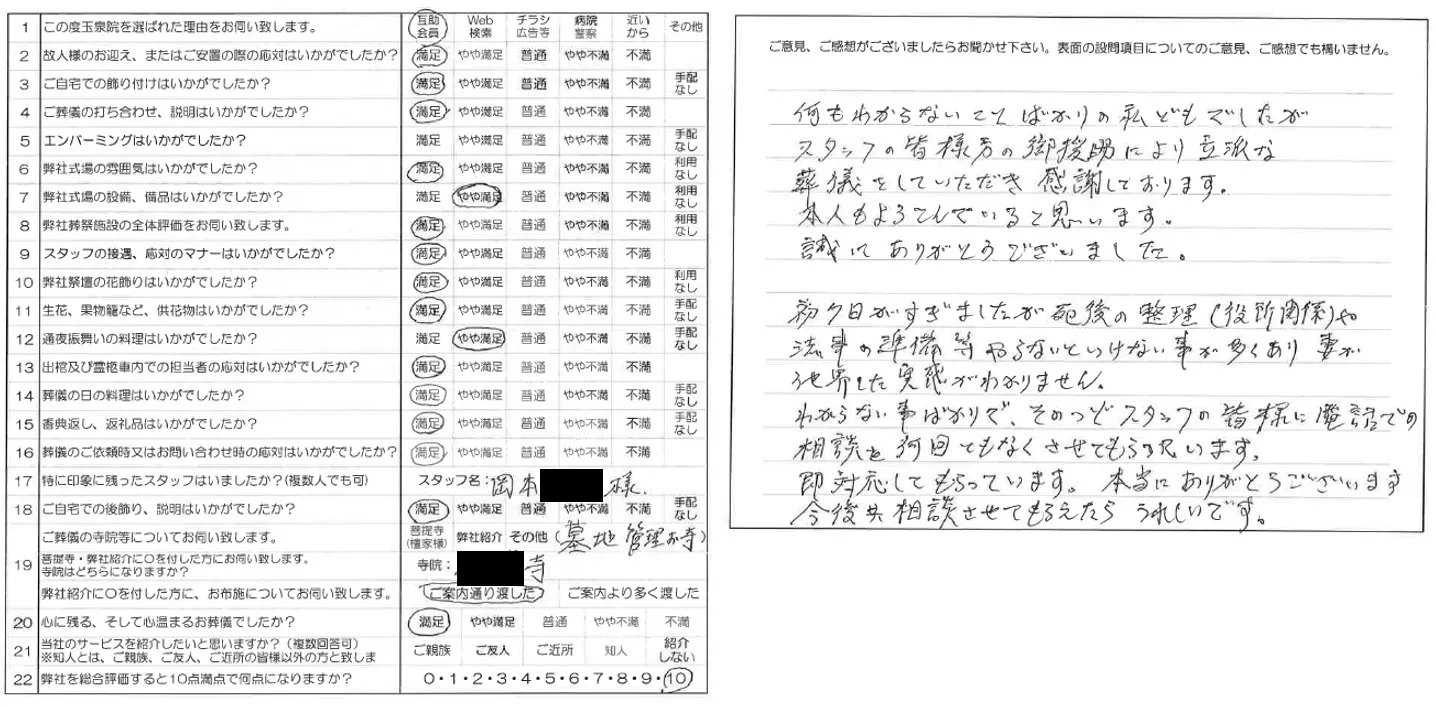 1 この度玉泉院を選ばれた理由をお伺い致します。 互助会員 Web検索 チラシ広告等 病院警察 近いから その他
2 故人様のお迎え、またはご安置の際の応対はいかがでしたか? 満足 やや満足 普通 やや不満 不満
3 ご自宅での飾り付けはいかがでしたか? 満足 やや満足 普通 やや不満 不満 手配なし
4 ご葬儀の打ち合わせ、説明はいかがでしたか? 満足 やや満足 普通 やや不満 不満
5 エンバーミングはいかがでしたか? 満足 やや満足 普通 やや不満 不満 手配なし
6 弊社式場の雰囲気はいかがでしたか? 満足 やや満足 普通 やや不満 不満 利用なし
7 弊社式場の設備、備品はいかがでしたか? 満足 やや満足 普通 やや不満 不満 利用なし
8 弊社葬祭施設の全体評価をお伺い致します。 満足 やや満足 普通 やや不満 不満 利用なし
9 スタッフの接遇、応対のマナーはいかがでしたか? 満足 やや満足 普通 やや不満 不満
10 弊社祭壇の花飾りはいかがでしたか? 満足 やや満足 普通 やや不満 不満 利用なし
11 生花、果物籠など、供花物はいかがでしたか? 満足 やや満足 普通 やや不満 不満 手配なし
12 通夜振舞いの料理はいかがでしたか? 満足 やや満足 普通 やや不満 不満 手配なし
13 出棺及び霊柩車内での担当者の応対はいかがでしたか? 満足 やや満足 普通 やや不満 不満
14 葬儀の日の料理はいかがでしたか? 満足 やや満足 普通 やや不満 不満 手配なし
15 香典返し、返礼品はいかがでしたか? 満足 やや満足 普通 やや不満 不満 手配なし
16 葬儀のご依頼時又はお問い合わせ時の応対はいかがでしたか? 満足 やや満足 普通 やや不満 不満
17 特に印象に残ったスタッフはいましたか?(複数人でも可) スタッフ名:岡本 様.
18 ご自宅での後飾り、説明はいかがでしたか? 満足 やや満足 普通 やや不満 不満 手配なし
19 ご葬儀の寺院等についてお伺い致します。 菩提寺(檀家様) 弊社紹介 その他(墓地管理お寺)
菩提寺・弊社紹介に○を付した方にお伺い致します。
寺院はどちらになりますか? 寺院: 寺
弊社紹介に○を付した方に、お布施についてお伺い致します。 ご案内通り渡した ご案内より多く渡した
20 心に残る、そして心温まるお葬儀でしたか? 満足 やや満足 普通 やや不満 不満
21 当社のサービスを紹介したいと思いますか?(複数回答可) ご親族 ご友人 ご近所 知人 紹介しない
※知人とは、ご親族、ご友人、ご近所の皆様以外の方と致しま
22 弊社を総合評価すると10点満点で何点になりますか? 0・1・2・3・4・5・6・7・8・9・10
ご意見、ご感想がございましたらお聞かせ下さい。表面の設問項目についてのご意見、ご感想でも構いません。
何もわからないことばかりの私どもでしたが
スタッフの皆様方の御援助により立派な
葬儀をしていただき感謝しております。
本人もよろこんでいると思います。
誠にありがとうございました。
初夕日がすぎましたが死後の整理(役所関係)や
法事の準備等やらないといけない事が多くあり妻が
他界した実感がわかりません。
わからない事ばかりで、そのつどスタッフの皆様に電話での
相談を何回ともなくさせてもらています。
即対応してもらっています。本当にありがとうございます
今後共相談させてもらえたらうれしいです。